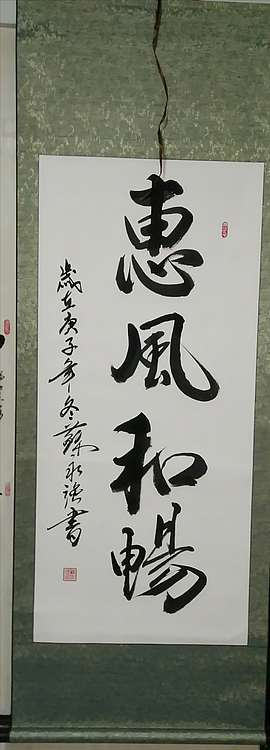 惠風和暢
歲在庚子年冬蘇永強書